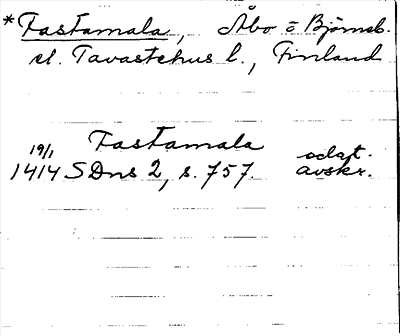 *Fastamala, Åbo o Björneb.
el. Tavastehus l., Finland
Fastamala
19/1 odat.
1414 SDns 2, s. 757. avskr.